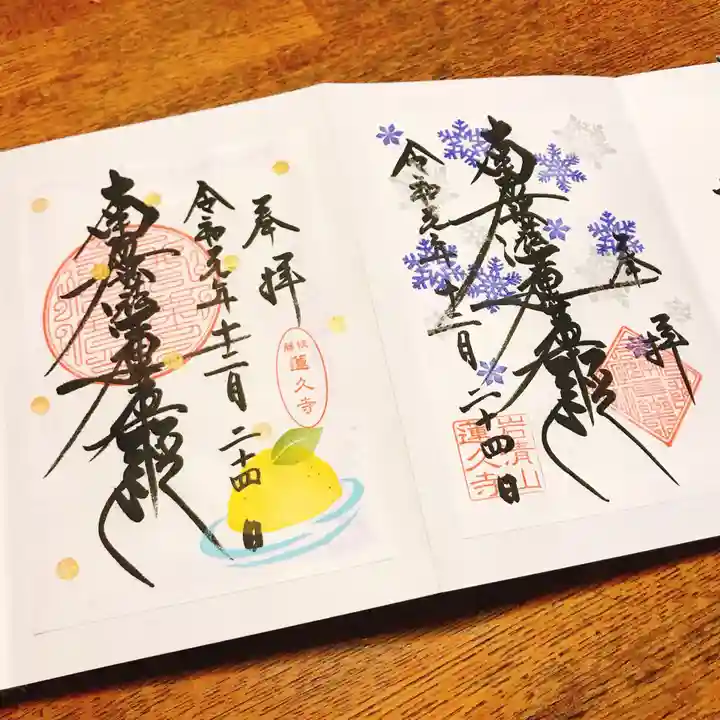 奉拝
令和元年十二月二十四日
南無妙法蓮華経
蓮久寺
奉拝
南無妙法蓮華経
令和元年十二月二十四日
岩清山
蓮久寺